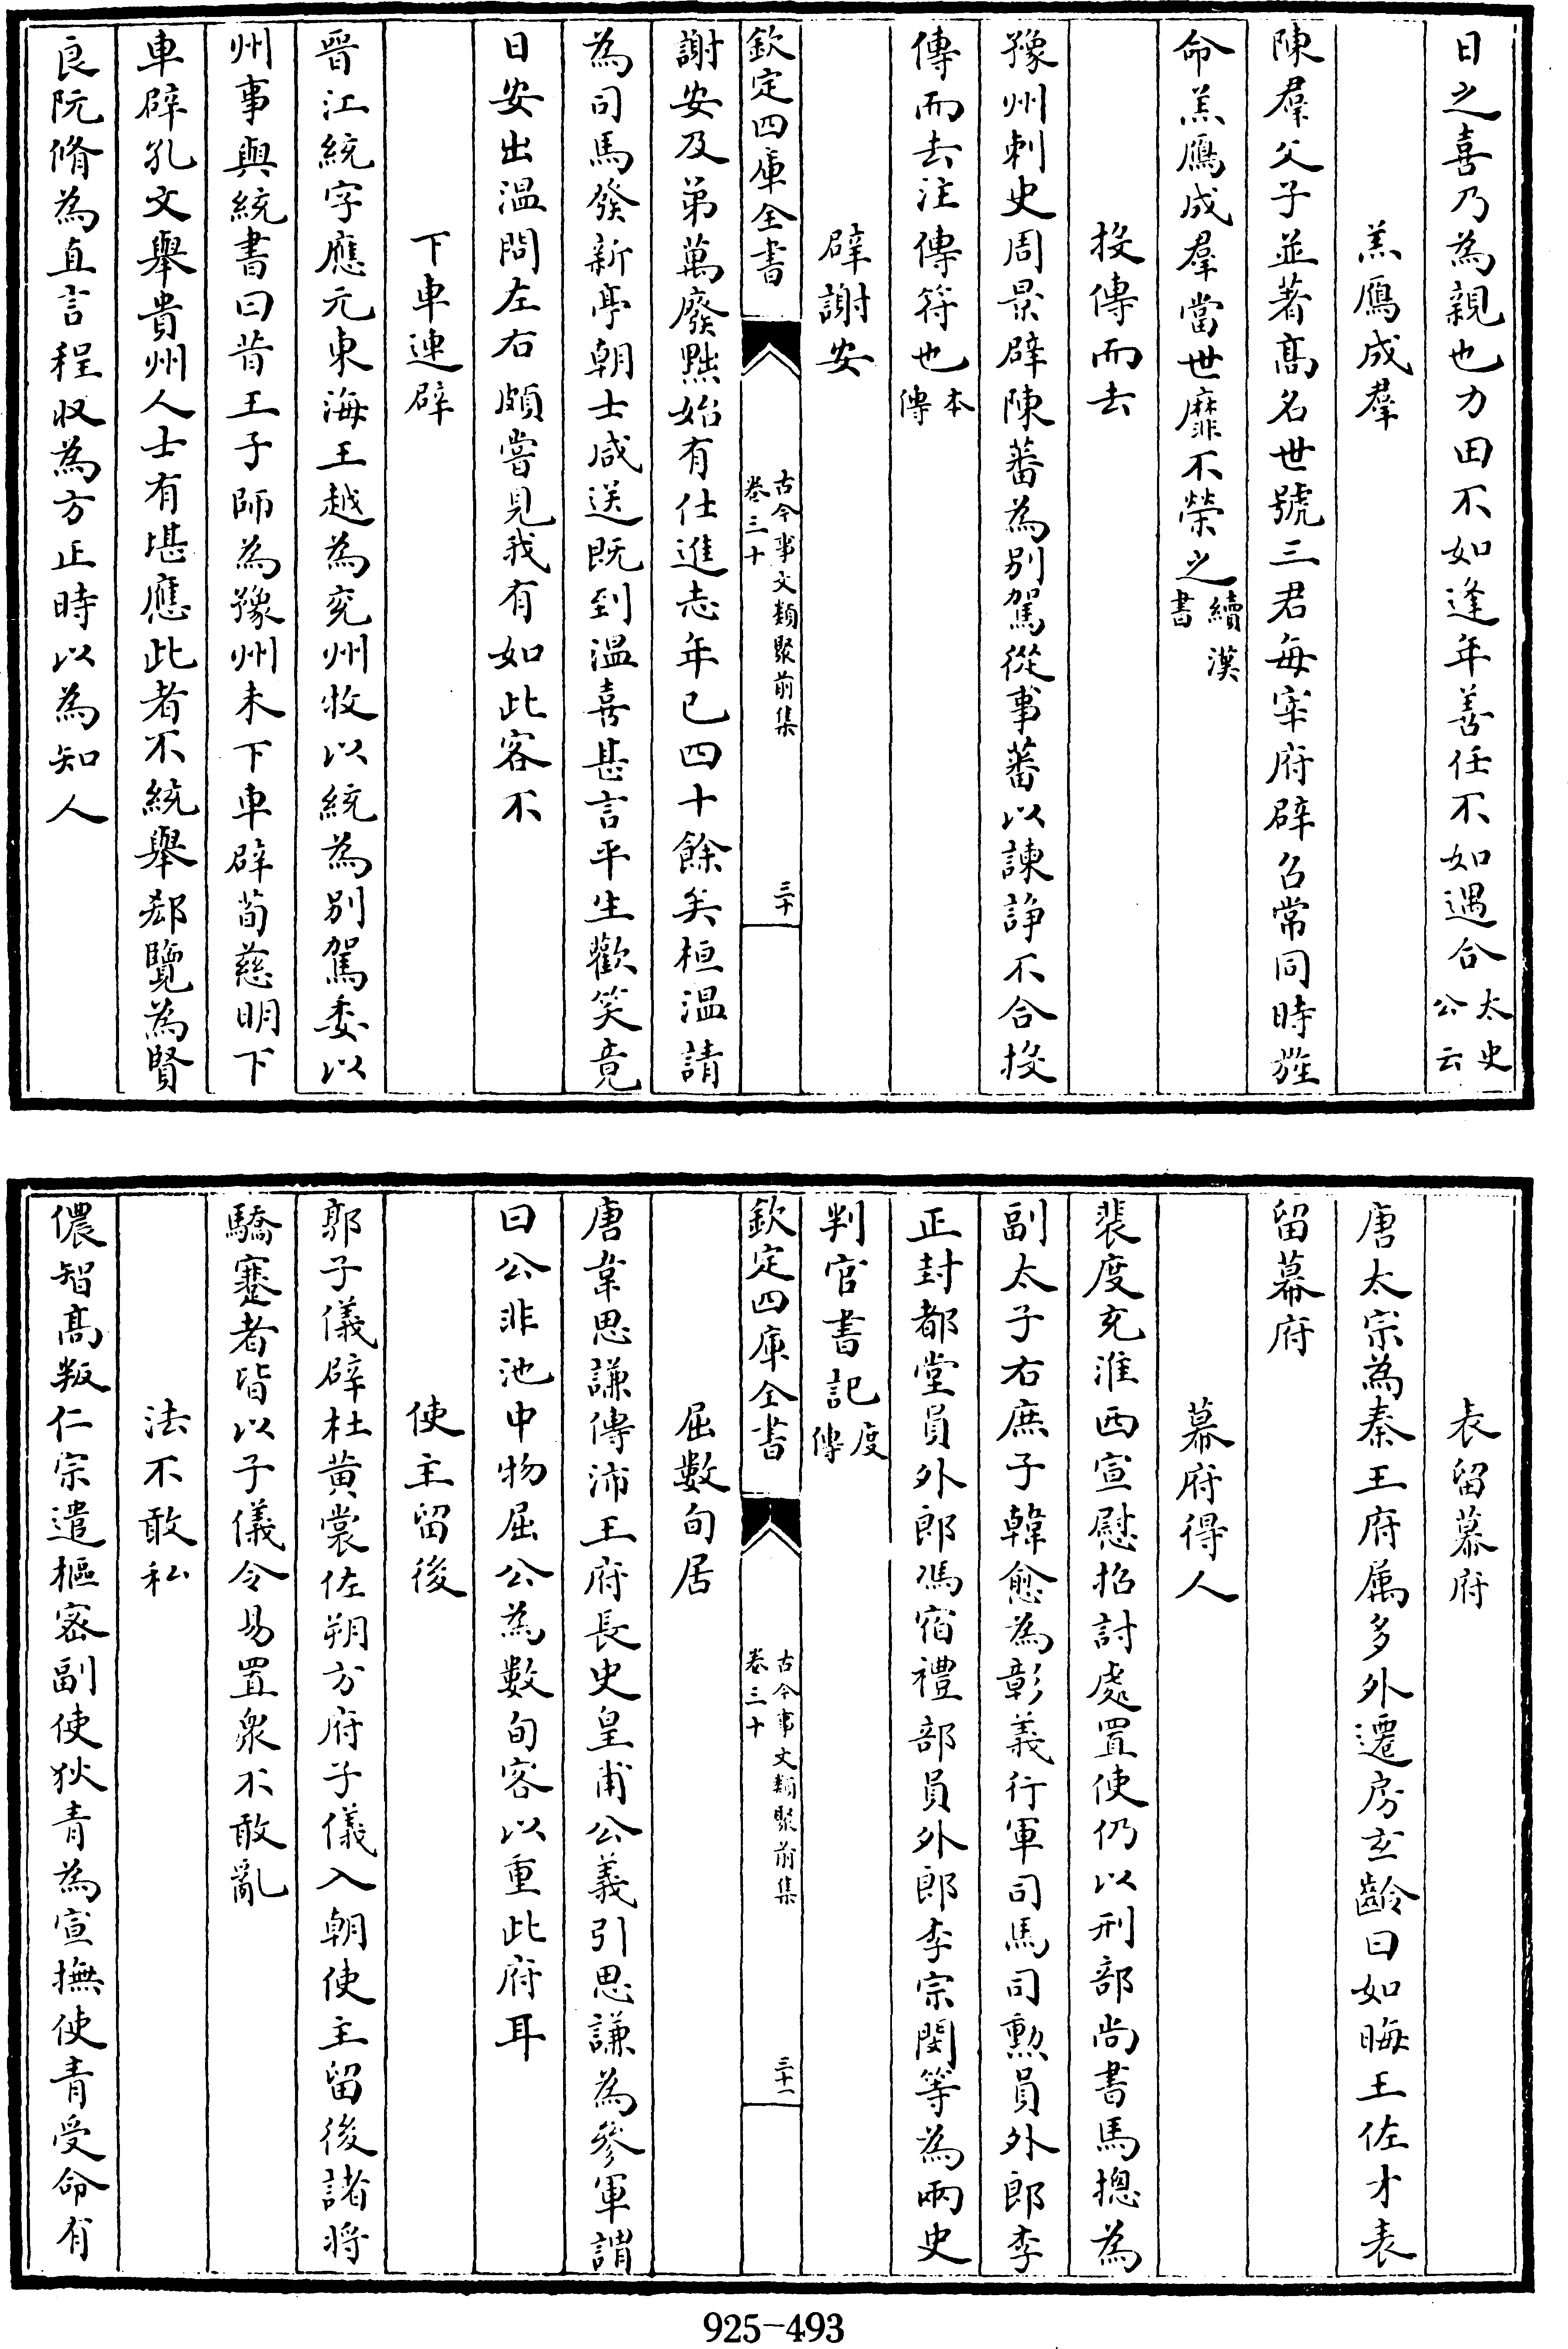 日之喜乃為親也力田不如逢年善仕不如遇合太史公云
羔鴈成羣
陳羣父子並著髙名世號三君每宰府辟召常同時旌
命羔鴈成羣當世靡不榮之續漢書
投傳而去
豫州刺史周景辟陳蕃為别駕從事蕃以諫諍不合投
傳而去注傳符也本傳
辟謝安
欽定四庫全書 古今事文類聚前集 卷三十 三十
謝安及弟萬廢黜始有仕進志年已四十餘矣桓温請
為司馬發新亭朝士咸送既到温喜甚言平生歡笑竟
日安出温問左右頗嘗見我有如此客不
下車連辟
晉江統字應元東海王越為兖州牧以統為别駕委以
州事與統書曰昔王子師為豫州未下車辟荀慈明下
車辟孔文舉貴州人士有堪應此者不統舉郄覽為賢
良阮脩為直言程収為方正時以為知人
表留幕府
唐太宗為秦王府属多外遷房玄齡曰如晦王佐才表
留幕府
幕府得人
裴度充淮西宣慰招討處置使仍以刑部尚書馬摠為
副太子右庶子韓愈為彰義行軍司馬司勲員外郎李
正封都堂員外郎馮宿禮部員外郎李宗閔等為兩史
判官書記度傳
欽定四庫全書 古今事文類聚前集 卷三十 三十一
屈數旬居
唐韋思謙傳沛王府長史皇甫公義引思謙為參軍謂
曰公非池中物屈公為數旬客以重此府耳
使主留後
郭子儀辟杜黄裳佐朔方府子儀入朝使主留後諸將
驕蹇者皆以子儀令易置衆不敢亂
法不敢私
儂智髙叛仁宗遣樞密副使狄青為宣撫使青受命有
925-493